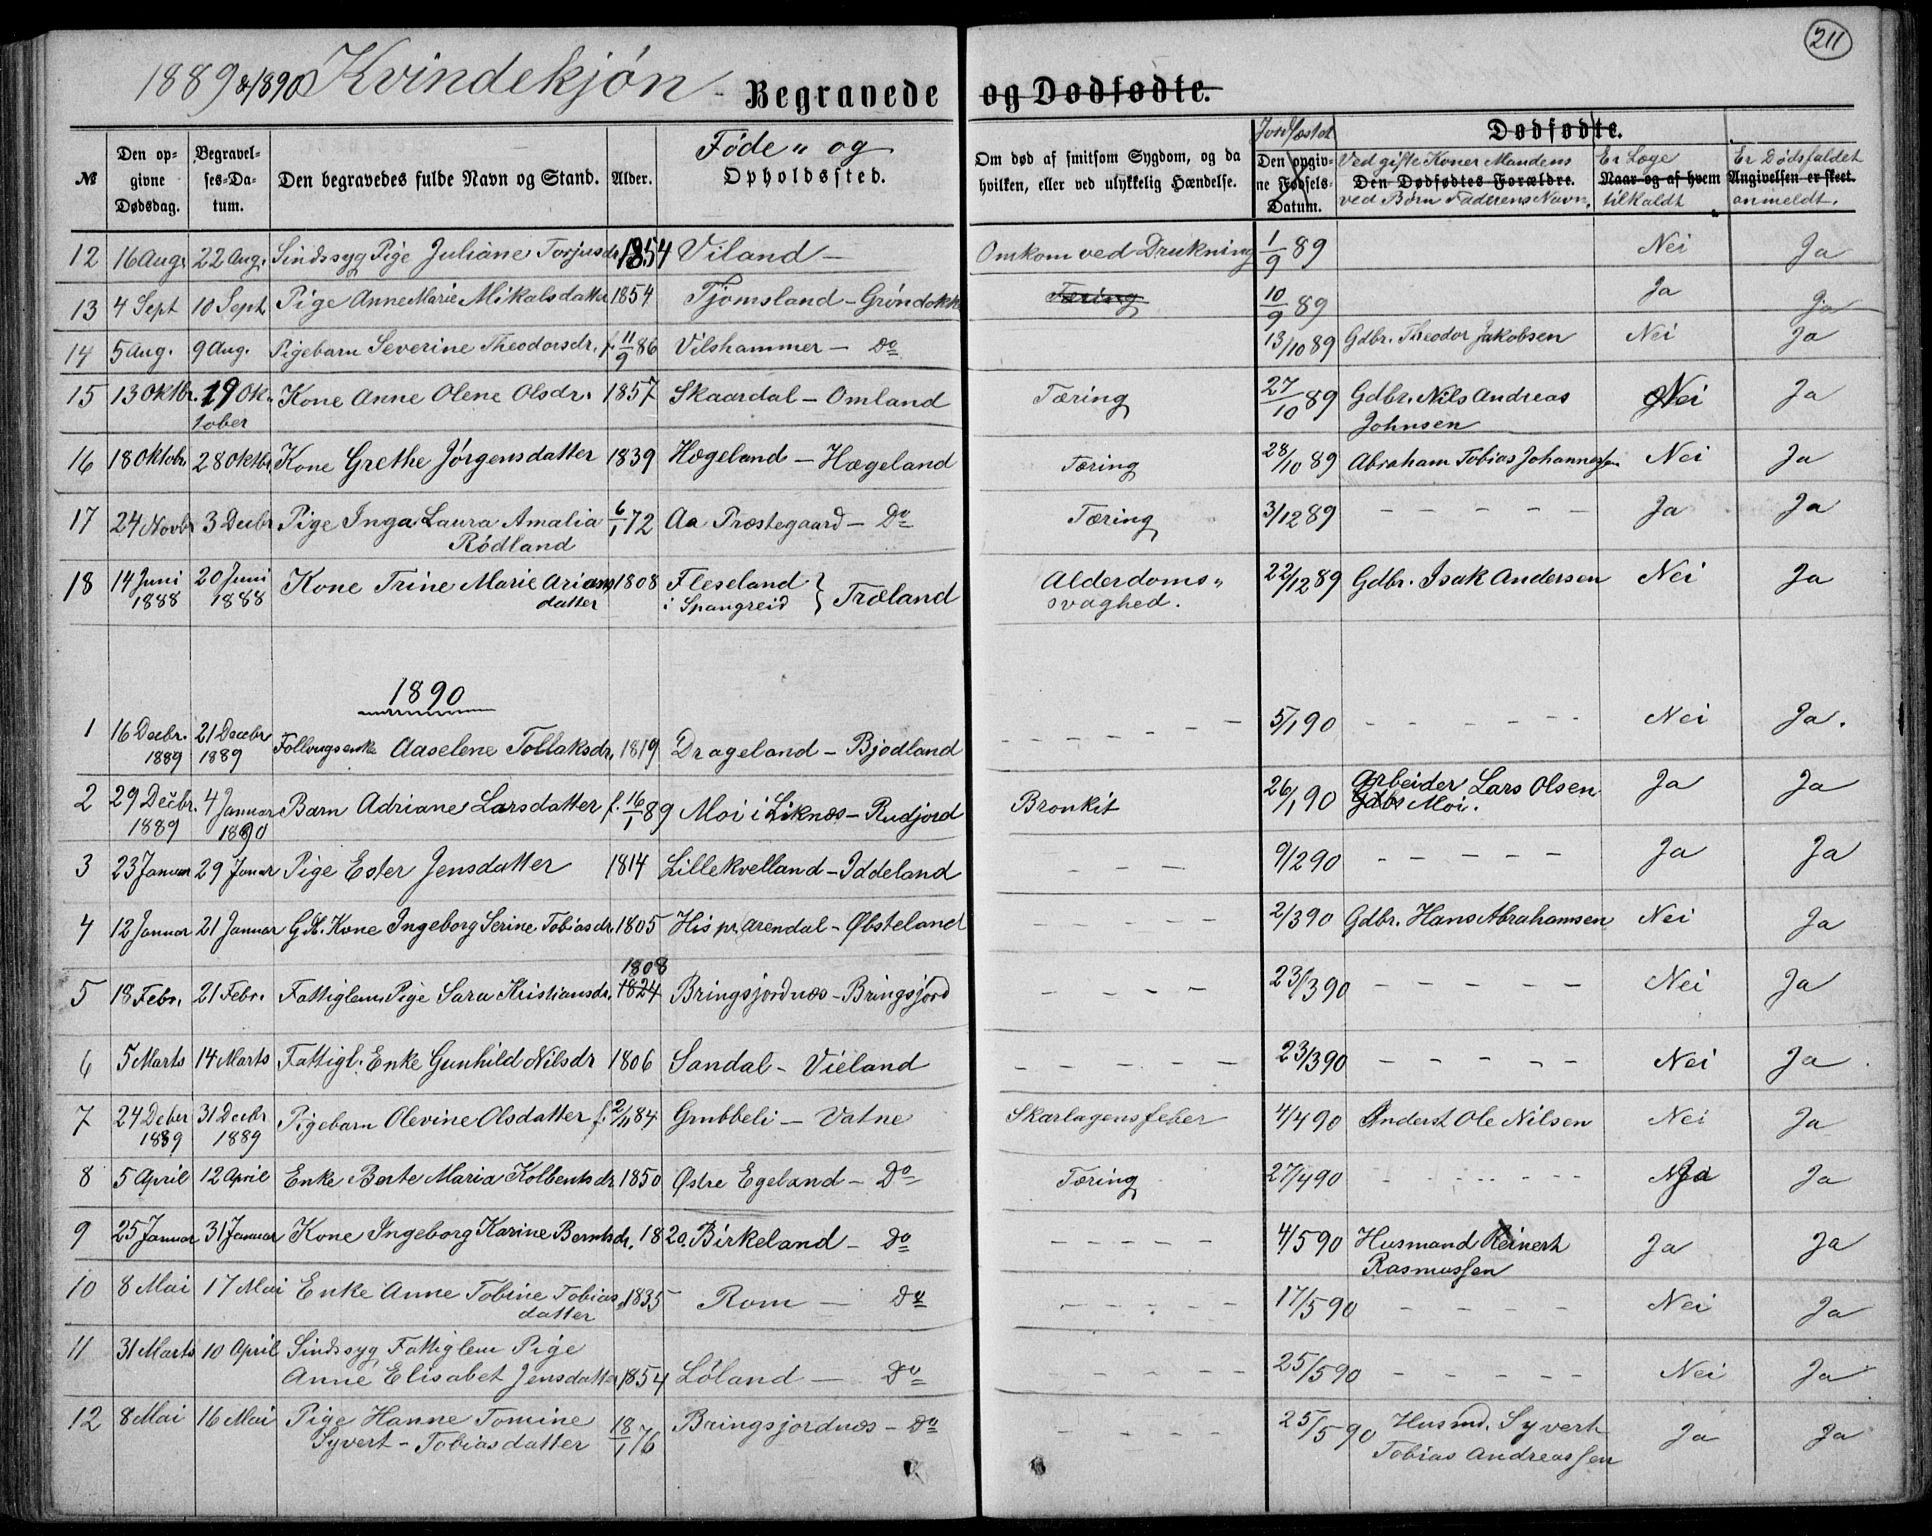 211
1889 & 1890 Kvindekjøn - Begravede og Dødfødte.
№ Den opgivne Dødsdag. Begravelses-Datum. Den begravedes fulde Navn og Stand. Alder. Føde- og Opholdssted. Om død af smitsom Sygdom, og da hvilken, eller ved ulykkelig Hændelse. Jordfæstet Den opgivne Fødsels-Datum. Dødfødte. Ved gifte Koner Mandens Den Dødfødtes Forældre. ved Børn Faderens Navn. Er Læge Naar og af hvem tilkaldt Er Dødsfaldet Angivelsen er skeet. anmeldt.
12 16 Aug. 22 Aug. Sindssyg Pige Juliane Torjusdr. 1854 Viland - Omkom ved Drukning 1/9 89 Nei Ja
13 4 Sept 10 Sept. Pige Anne Marie Mikalsdatter 1854 Tjomsland - Grøndokk Tæring 10/9 89 Ja Ja
14 5 Aug. 9 Aug. Pigebarn Severine Theodorsdr. f. 11/9 86 Vilshammer - Do 13/10 89 Gdbr. Theodor Jakobsen Nei Ja
15 13 Oktbr. 19 Oktober Kone Anne Olene Olsdr. 1857 Skaardal - Omland Tæring 27/10 89 Gdbr. Nils Andreas Nei Ja
Johnsen
16 18 Oktobr. 28 Oktbr. Kone Grethe Jørgensdatter 1839 Hægeland - Hægeland Tæring 28/10 89 Abraham Tobias Johannessen Nei Ja
17 24 Novbr. 3 Decbr Pige Inga Laura Amalia 6/1 72 Aa Præstegaard - Do Tæring 3/12 89 - - - - - Ja Ja
Rødland
18 14 Juni 1888 20 Juni 1888 Kone Trine Marie Arians 1808 Fleseland i Spangreid } Træland Alderdoms- 22/12 89 Gdbr. Isak Andersen Nei Ja
datter svaghed.
1890
1 16 Decbr. 1889 21 Decbr 1889 Follougsenke Aaselene Tollaksdr. 1819 Drageland - Bjødland - - - - - 5/1 90 - - - - - Nei Ja.
2 29 Decbr. 1889 4 Januar 1890 Barn Adriane Larsdatter f. 16/1 89 Moi i Liknæs - Rudjord Bronkit 26/1 90 Arbeider Lars Olsen Ja Ja
Gdbr Moi.
3 23 Januar 29 Januar Pige Ester Jensdatter 1814 Lillekvelland - Iddeland - - - 9/2 90 - - - - - Ja Ja
4 12 Januar 21 Januar Gbr. Kone Ingeborg Serine Tobiasdr. 1805 His pr. Arendal - Øbsteland - - - - 2/3 90 Gdbr. Hans Abrahamsen Nei Ja
5 18 Febr. 21 Febr. Fattiglem Pige Sara Kristiansdr. 1808 1824 Bringsjordnæs - Bringsjord - - - - 23/3 90 - - - - - Nei Ja
6 5 Marts 14 Marts Fattigl. Enke Gunhild Nilsdr 1806 Sandal - Vieland - - - - - 23/3 90 - - - - - Nei Ja
7 24 Decbr 1889 31 Decbr 1889 Pigebarn Olevine Olsdatter f. 2/11 84 Grubbeli - Vatne Skarlagensfeber 4/4 90 Inderst Ole Nilsen Nei Ja
8 5 April 12 April Enke Berte Maria Kolbentsdr. 1850 Østre Egeland - Do Tæring 27/4 90 - - - - - Ja Ja
9 25 Januar 31 Januar Kone Ingeborg Karine Berntsdr. 1820. Birkeland - Do - - - - - 4/5 90 Husmand Reinert Ja Ja
Rasmussen
10 8 Mai 17 Mai Enke Anne Tobine Tobias 1835 Rom - Do - - - - - 17/5 90 - - - - - Nei Ja
datter
11 31 Marts 10 April Sindssyg Fattiglem Pige
Anne Elisabet Jensdatter 1854 Løland - Do - - - - 25/5 90 - - - - - Nei Ja
12 8 Mai 16 Mai Pige Hanne Tomine 18/1 76 Bringsjordnæs - Do - - - - 25/5 90 Husmd. Syvert Ja Ja
Syvert-Tobiasdatter Tobias Andreassen